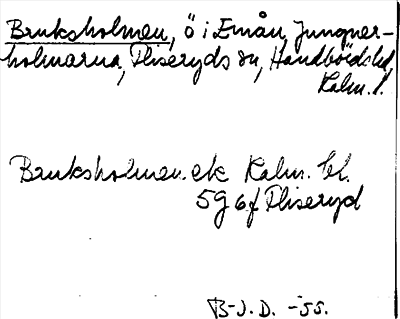 Bruksholmen, ö i Emån, Jungner-
holmarna, Fliseryds sn, Handbörds hd,
Kalm. l.
Bruksholmen. ek Kalm. bl.
5G 6f Fliseryd
B-J.D. -55.